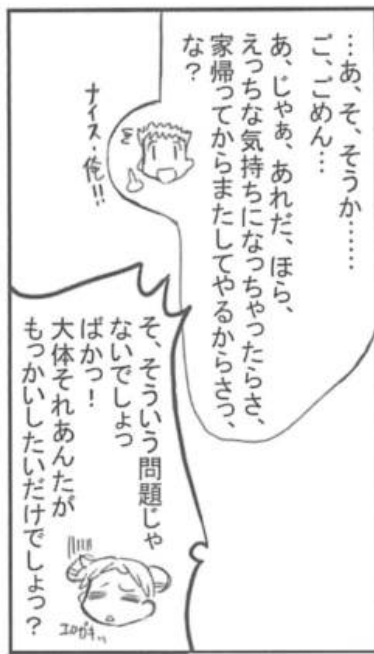 …あ、そ、そうか……
ご、ごめん…
あ、じゃぁ、あれだ、ほら、
えっちな気持ちになっちゃったらさ、
家帰ってからまたしてやるからさっ、
な?
ナイス・俺!!
そ、そういう問題じゃ
ないでしょっ
ばかっ!
大体それあんたが
もっかいしたいだけでしょっ?
エロガキ…